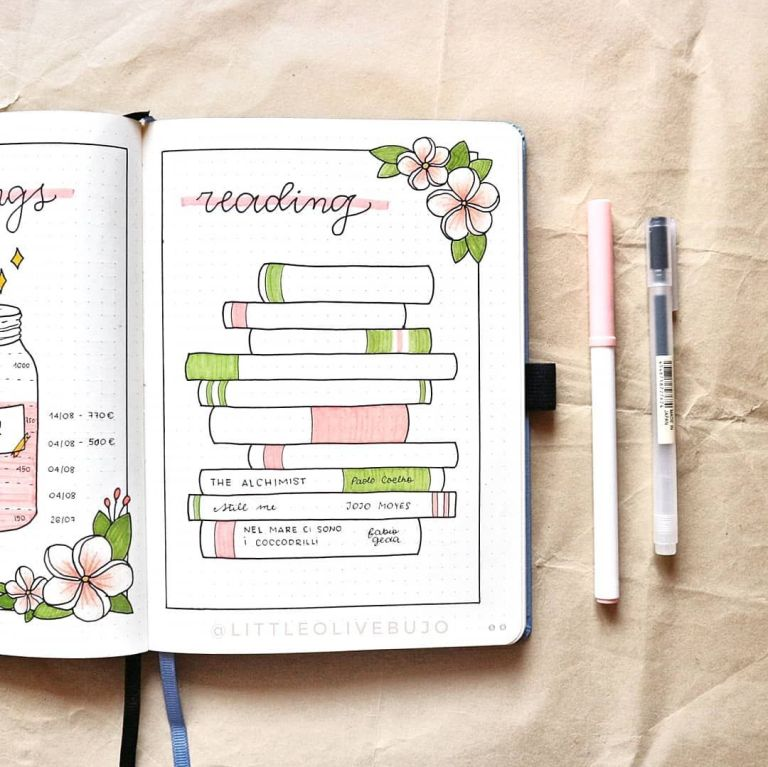 ngs
1000
750
450
150
14/08 - 770€
04/08 - 500€
04/08
04/08
28/07
reading
THE ALCHIMIST Paolo Coelho
Still me JOJO MOYES
NEL MARE CI SONO fabio
i COCCODRILLI geda
@LITTLEOLIVEBUJO
MADE IN
JAPAN